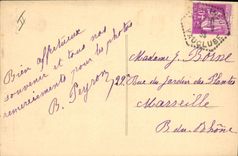 Bien affectueux
souvenir et tous nos
remerciements pour les photos
B. Peyron
VAUCLUSE
Madame J. Bosse
29 Rue du Jardin des Plantes
Marseille
B. du Rhône